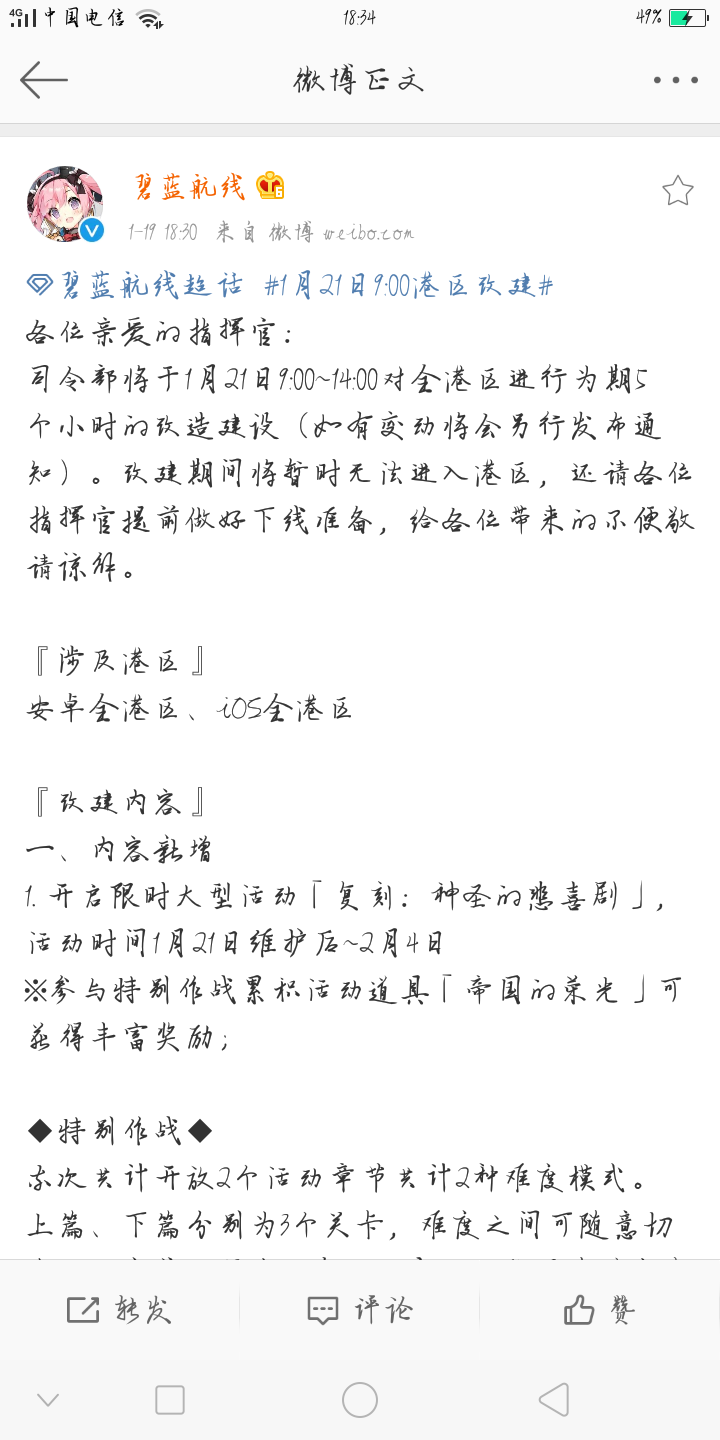 4G 中国电信 18:34 49%
微博正文
碧蓝航线 6
1-19 18:30 来自 微博 weibo.com
碧蓝航线超话 #1月21日9:00港区改建#
各位亲爱的指挥官：
司令部将于1月21日9:00~14:00对全港区进行为期5
个小时的改造建设（如有变动将会另行发布通
知）。改建期间将暂时无法进入港区，还请各位
指挥官提前做好下线准备，给各位带来的不便敬
请谅解。
『涉及港区』
安卓全港区、iOS全港区
『改建内容』
一、内容新增
1. 开启限时大型活动「复刻：神圣的悲喜剧」，
活动时间1月21日维护后~2月4日
※参与特别作战累积活动道具「帝国的荣光」可
获得丰富奖励；
◆特别作战◆
本次共计开放2个活动章节共计2种难度模式。
上篇、下篇分别为3个关卡，难度之间可随意切
转发 评论 赞